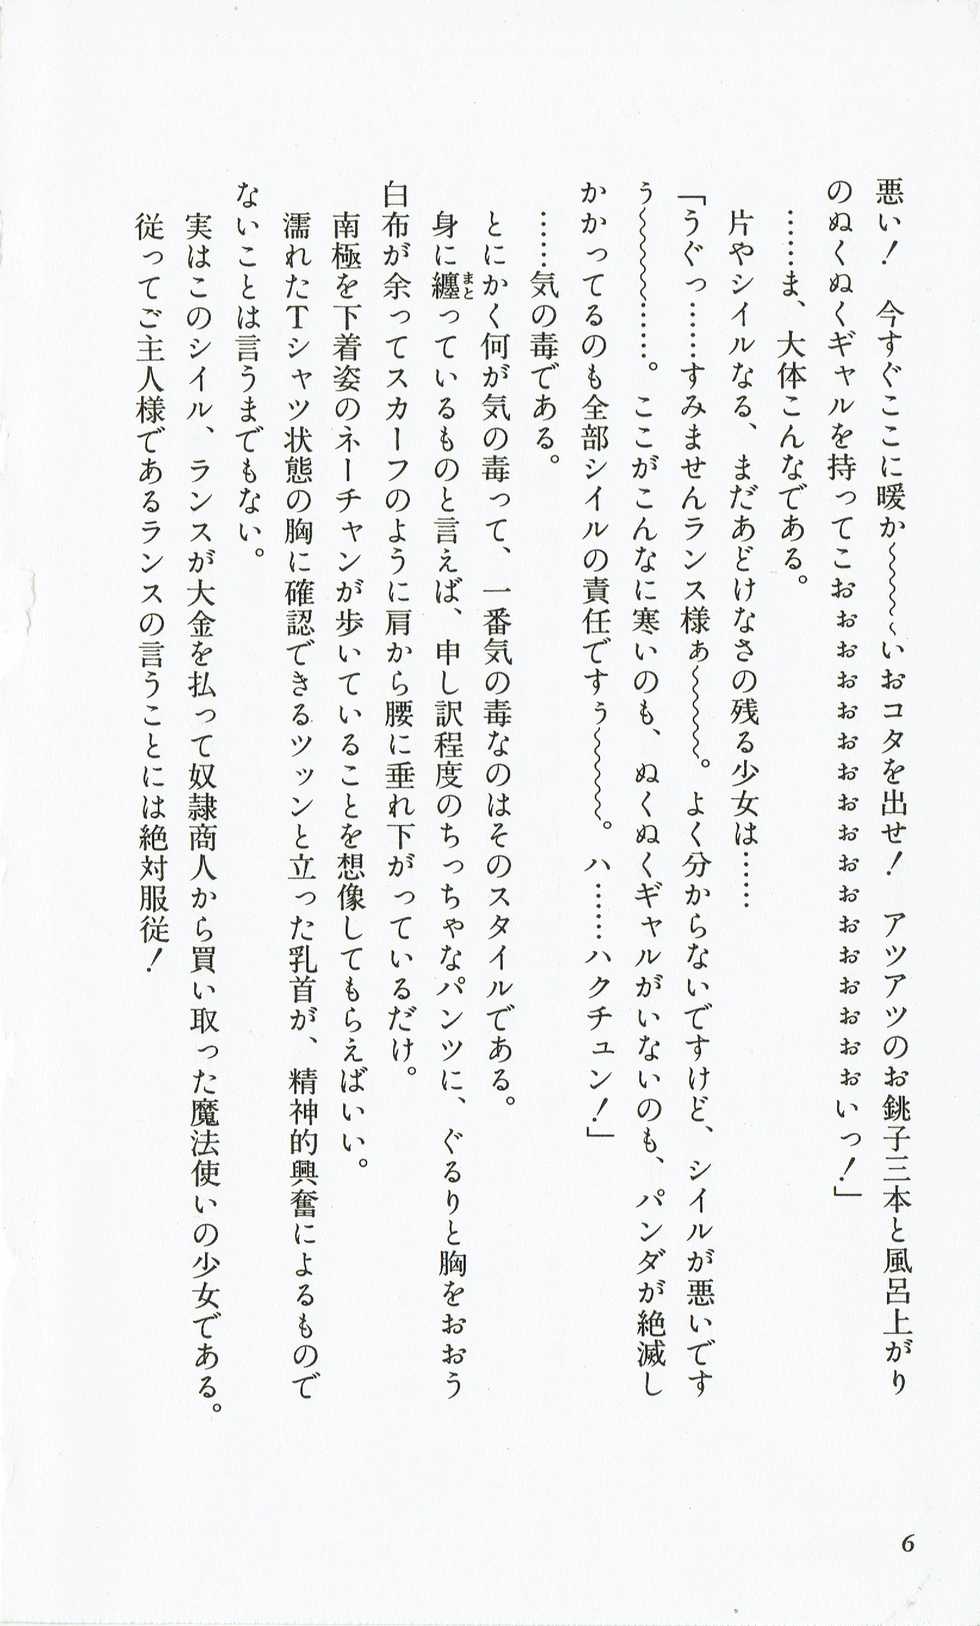 悪い！　今すぐここに暖か〜〜〜〜〜いおコタを出せ！　アツアツのお銚子三本と風呂上がり
のぬくぬくギャルを持ってこおぉぉぉぉぉぉぉぉぉぉぉぉぉぉぉぉいっ！」
……ま、大体こんなである。
片やシイルなる、まだあどけなさの残る少女は……
「うぐっ……すみませんランス様ぁ〜〜〜〜。よく分からないですけど、シイルが悪いです
う〜〜〜〜……。ここがこんなに寒いのも、ぬくぬくギャルがいないのも、パンダが絶滅し
かかってるのも全部シイルの責任ですぅ〜〜〜〜。ハ……ハクチュン！」
……気の毒である。
とにかく何が気の毒って、一番気の毒なのはそのスタイルである。
身に纏まとっているものと言えば、申し訳程度のちっちゃなパンツに、ぐるりと胸をおおう
白布が余ってスカーフのように肩から腰に垂れ下がっているだけ。
南極を下着姿のネーチャンが歩いていることを想像してもらえばいい。
濡れたTシャツ状態の胸に確認できるツッンと立った乳首が、精神的興奮によるもので
ないことは言うまでもない。
実はこのシイル、ランスが大金を払って奴隷商人から買い取った魔法使いの少女である。
従ってご主人様であるランスの言うことには絶対服従！
6